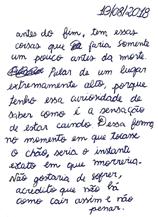 13/08/2018
antes do fim, tem essas
coisas que faria somente
um pouco antes da morte.
Pular de um lugar
extremamente alto, porque
tenho essa curiosidade de
saber como é a sensação
de estar caindo. Dessa forma,
no momento em que tocasse
o chão, seria o instante
exato em que morreria.
Não gostaria de sofrer,
acredito que não há
como cair assim e não
penar.